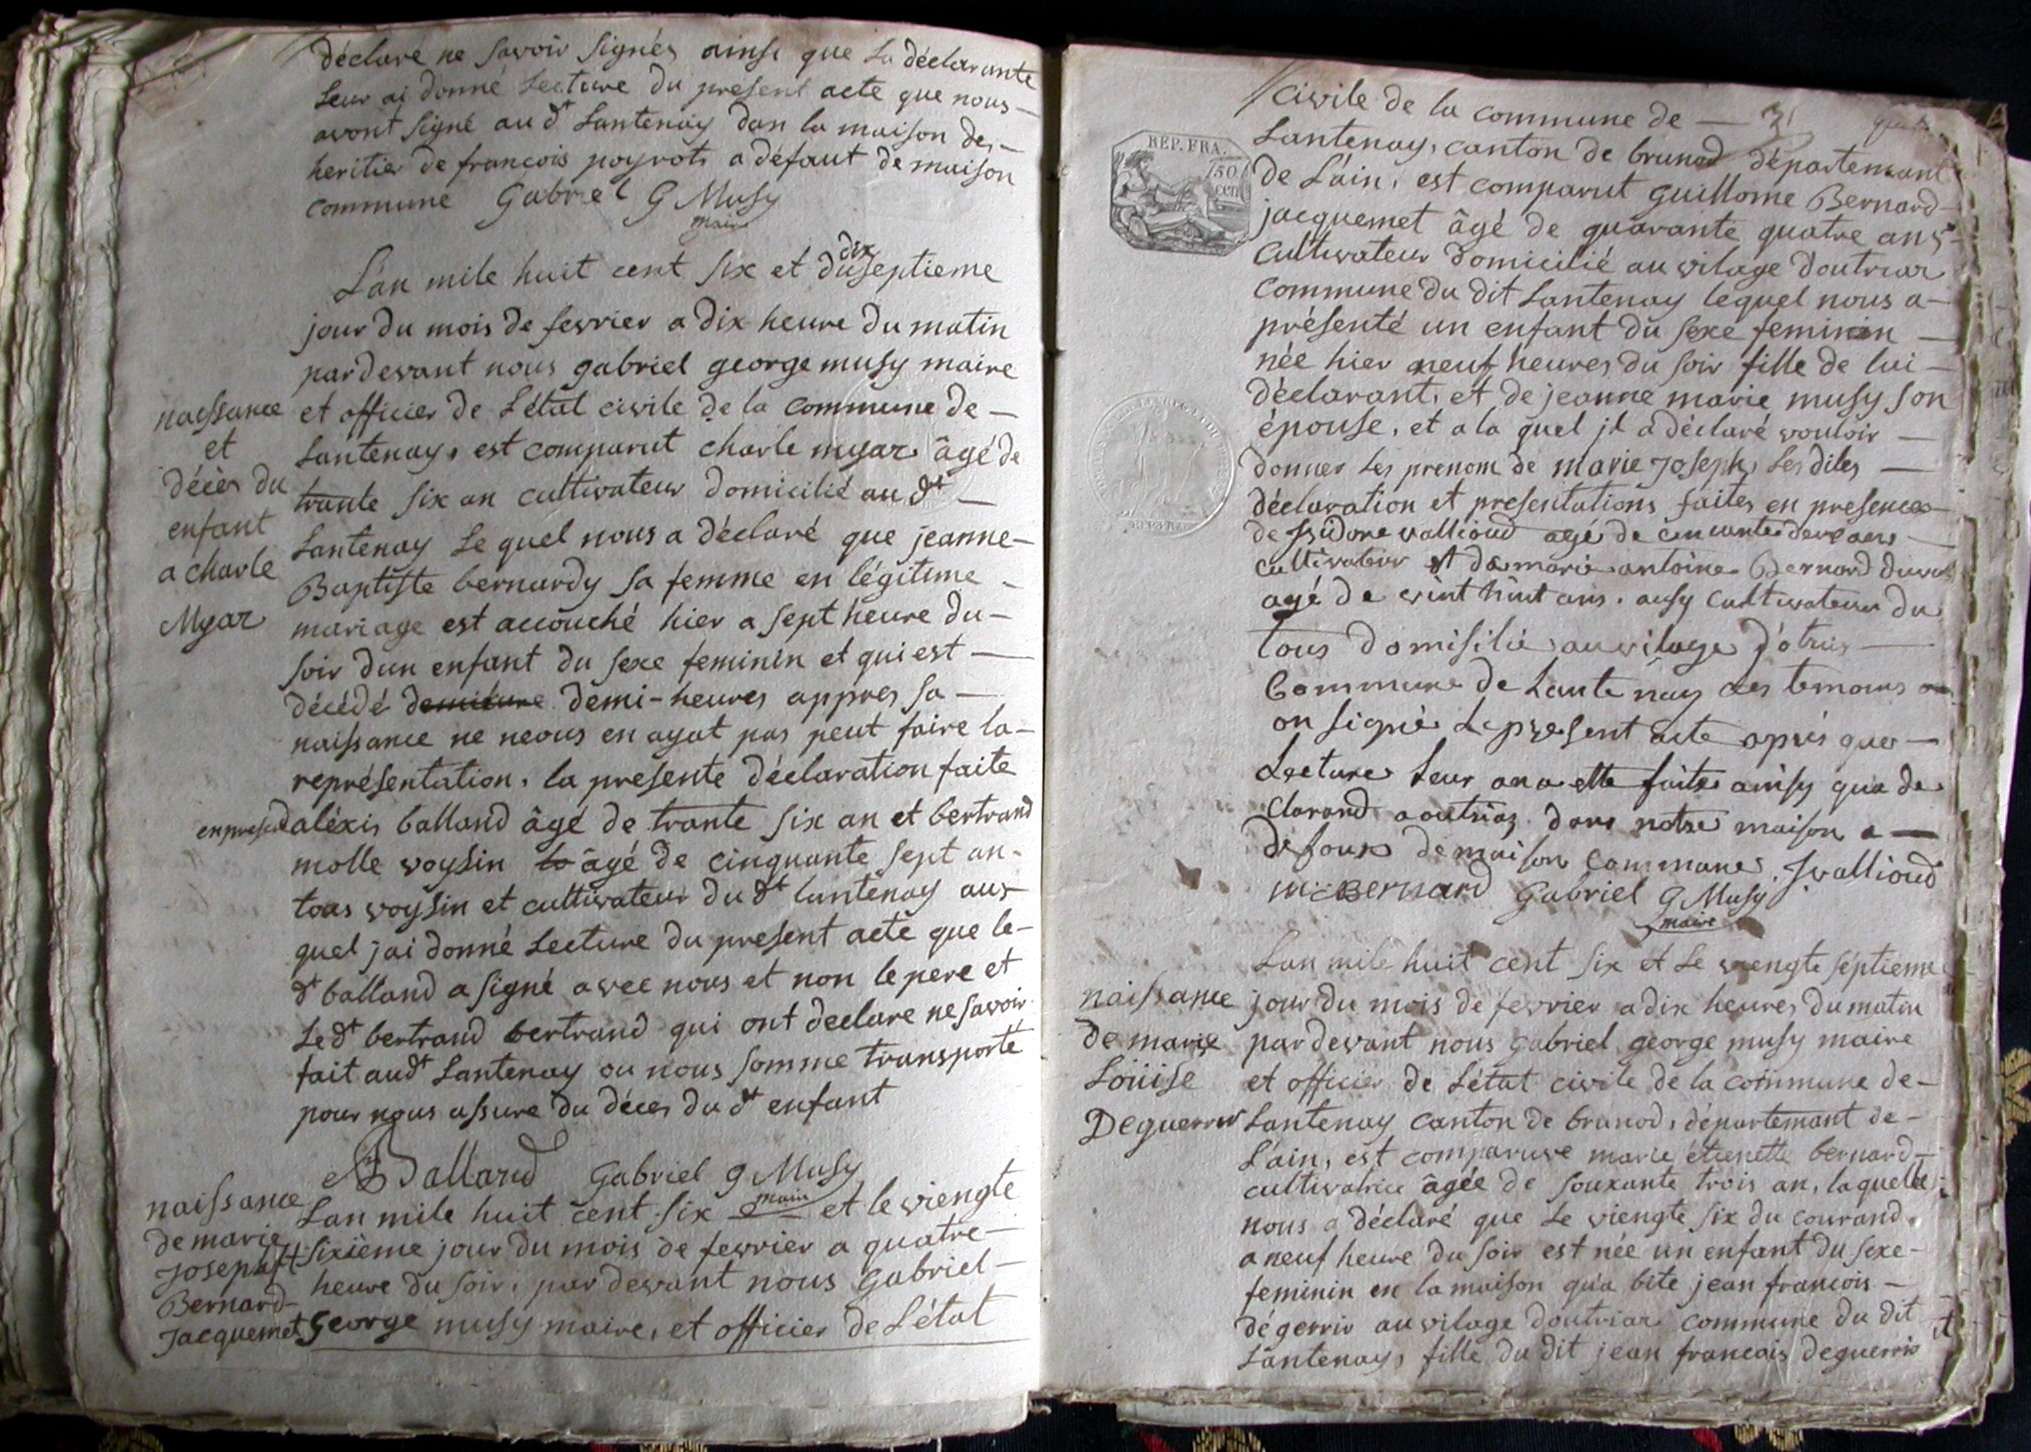 déclaré ne savoir signés ainsi que la déclarante
leur ai donné lecture du present acte que nous —
avont signé au dt Lantenay dan la maison des —
heritier de francois poyrot a défaut de maison
commune Gabriel G Musy
maire
L'an mile huit cent six et du dix septieme
jour du mois de fevrier a dix heure du matin
pardevant nous gabriel george musy maire
naissance
et
décès du
enfant
a charle
Myaz
et officier de L'état civile de la commune de —
Lantenay, est comparut charle myaz âgé de
trante six an cultivateur domicilié au dt —
Lantenay Le quel nous a déclaré que jeanne —
Baptiste bernardy sa femme en légitime —
mariage est accouché hier a sept heure du —
soir dun enfant du sexe feminin et qui est —
décédé demi-heures appres sa —
naissance ne neous en ayat pas peut faire la —
représentation, la presente déclaration faite
en presence aléxis balland âgé de trante six an et bertrand
molle voysin âgé de cinquante sept an -
tous voysin et cultivateur du dt lantenay aux
quel jai donné Lecture du present acte que le —
dt balland a signé avec nous et non le pere et
Le dt bertrand bertrand qui ont declare ne savoir
fait audt Lantenay ou nous somme transporté
pour nous assure du déces du dt enfant
Balland Gabriel g Musy
maire
naissance
de marie
Joseph
Bernard
Jacquemet
Lan mile huit cent six et le viengte
sixième jour du mois de fevrier a quatre —
heure du soir, par devant nous Gabriel —
George musy maire, et officier de L'état
civile de la commune de —
REP. FRA.
50
cen
Lantenay, canton de brunod département
de L'ain, est comparut guillome Bernard —
jacquemet âgé de quarante quatre ans —
cultivateur domicilié au vilage doutriaz
commune du dit Lantenay lequel nous a —
présenté un enfant du sexe feminin —
née hier neuf heures du soir fille de lui —
déclarant, et de jeanne marie musy son
épouse, et a la quel il a déclaré vouloir —
donner les prenom de marie Joseph, Les dites —
déclaration et presentations faites en presences
de Isidore vallioud agé de cincante deux ans —
cultivateur et de marie antoine Bernard
agé de vint huit ans. ausy cultivateur du
tous domisilié au vilage d'otrias —
Commune de Lantenay les temoins
on signé Le present acte après que —
Lecture Leur an a ette faite ainsy qua de
clarand a outriaz dans notre maison a —
defoux de maison commune. Jvallioud
m a Bernard Gabriel g Musy
maire
naissance
de marie
Loüise
Deguerris
Lan mile huit cent six et Le viengte séptieme
jour du mois de fevrier a dix heures du matin
par devant nous gabriel george musy maire
et officier de L'état civile de la commune de —
Lantenay canton de brunod, départemant de —
L'ain, est comparuve marie étienette bernard —
cultivatrice âgée de souxante trois an, laquelle
nous a déclaré que Le viengte six du courand
a neuf heure du soir est née un enfant du sexe —
feminin en la maison qua bite jean francois —
dégerrir au vilage doutriaz commune du dit
Lantenay, fille du dit jean francois deguerris